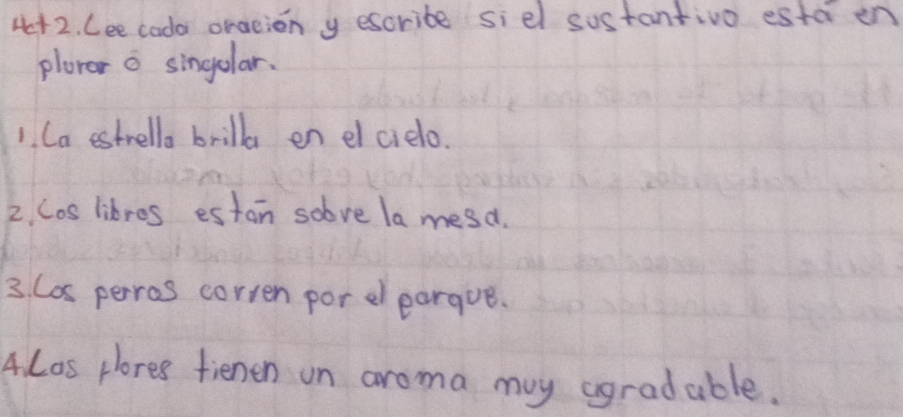 Act 2. Lee cada oración y escribe si el sustantivo está en
plurar ó singular.
1. La estrella brilla en el cielo.
2. Los libros están sobre la mesa.
3. Los perros corren por el parque.
4. Las flores tienen un aroma muy agradable.